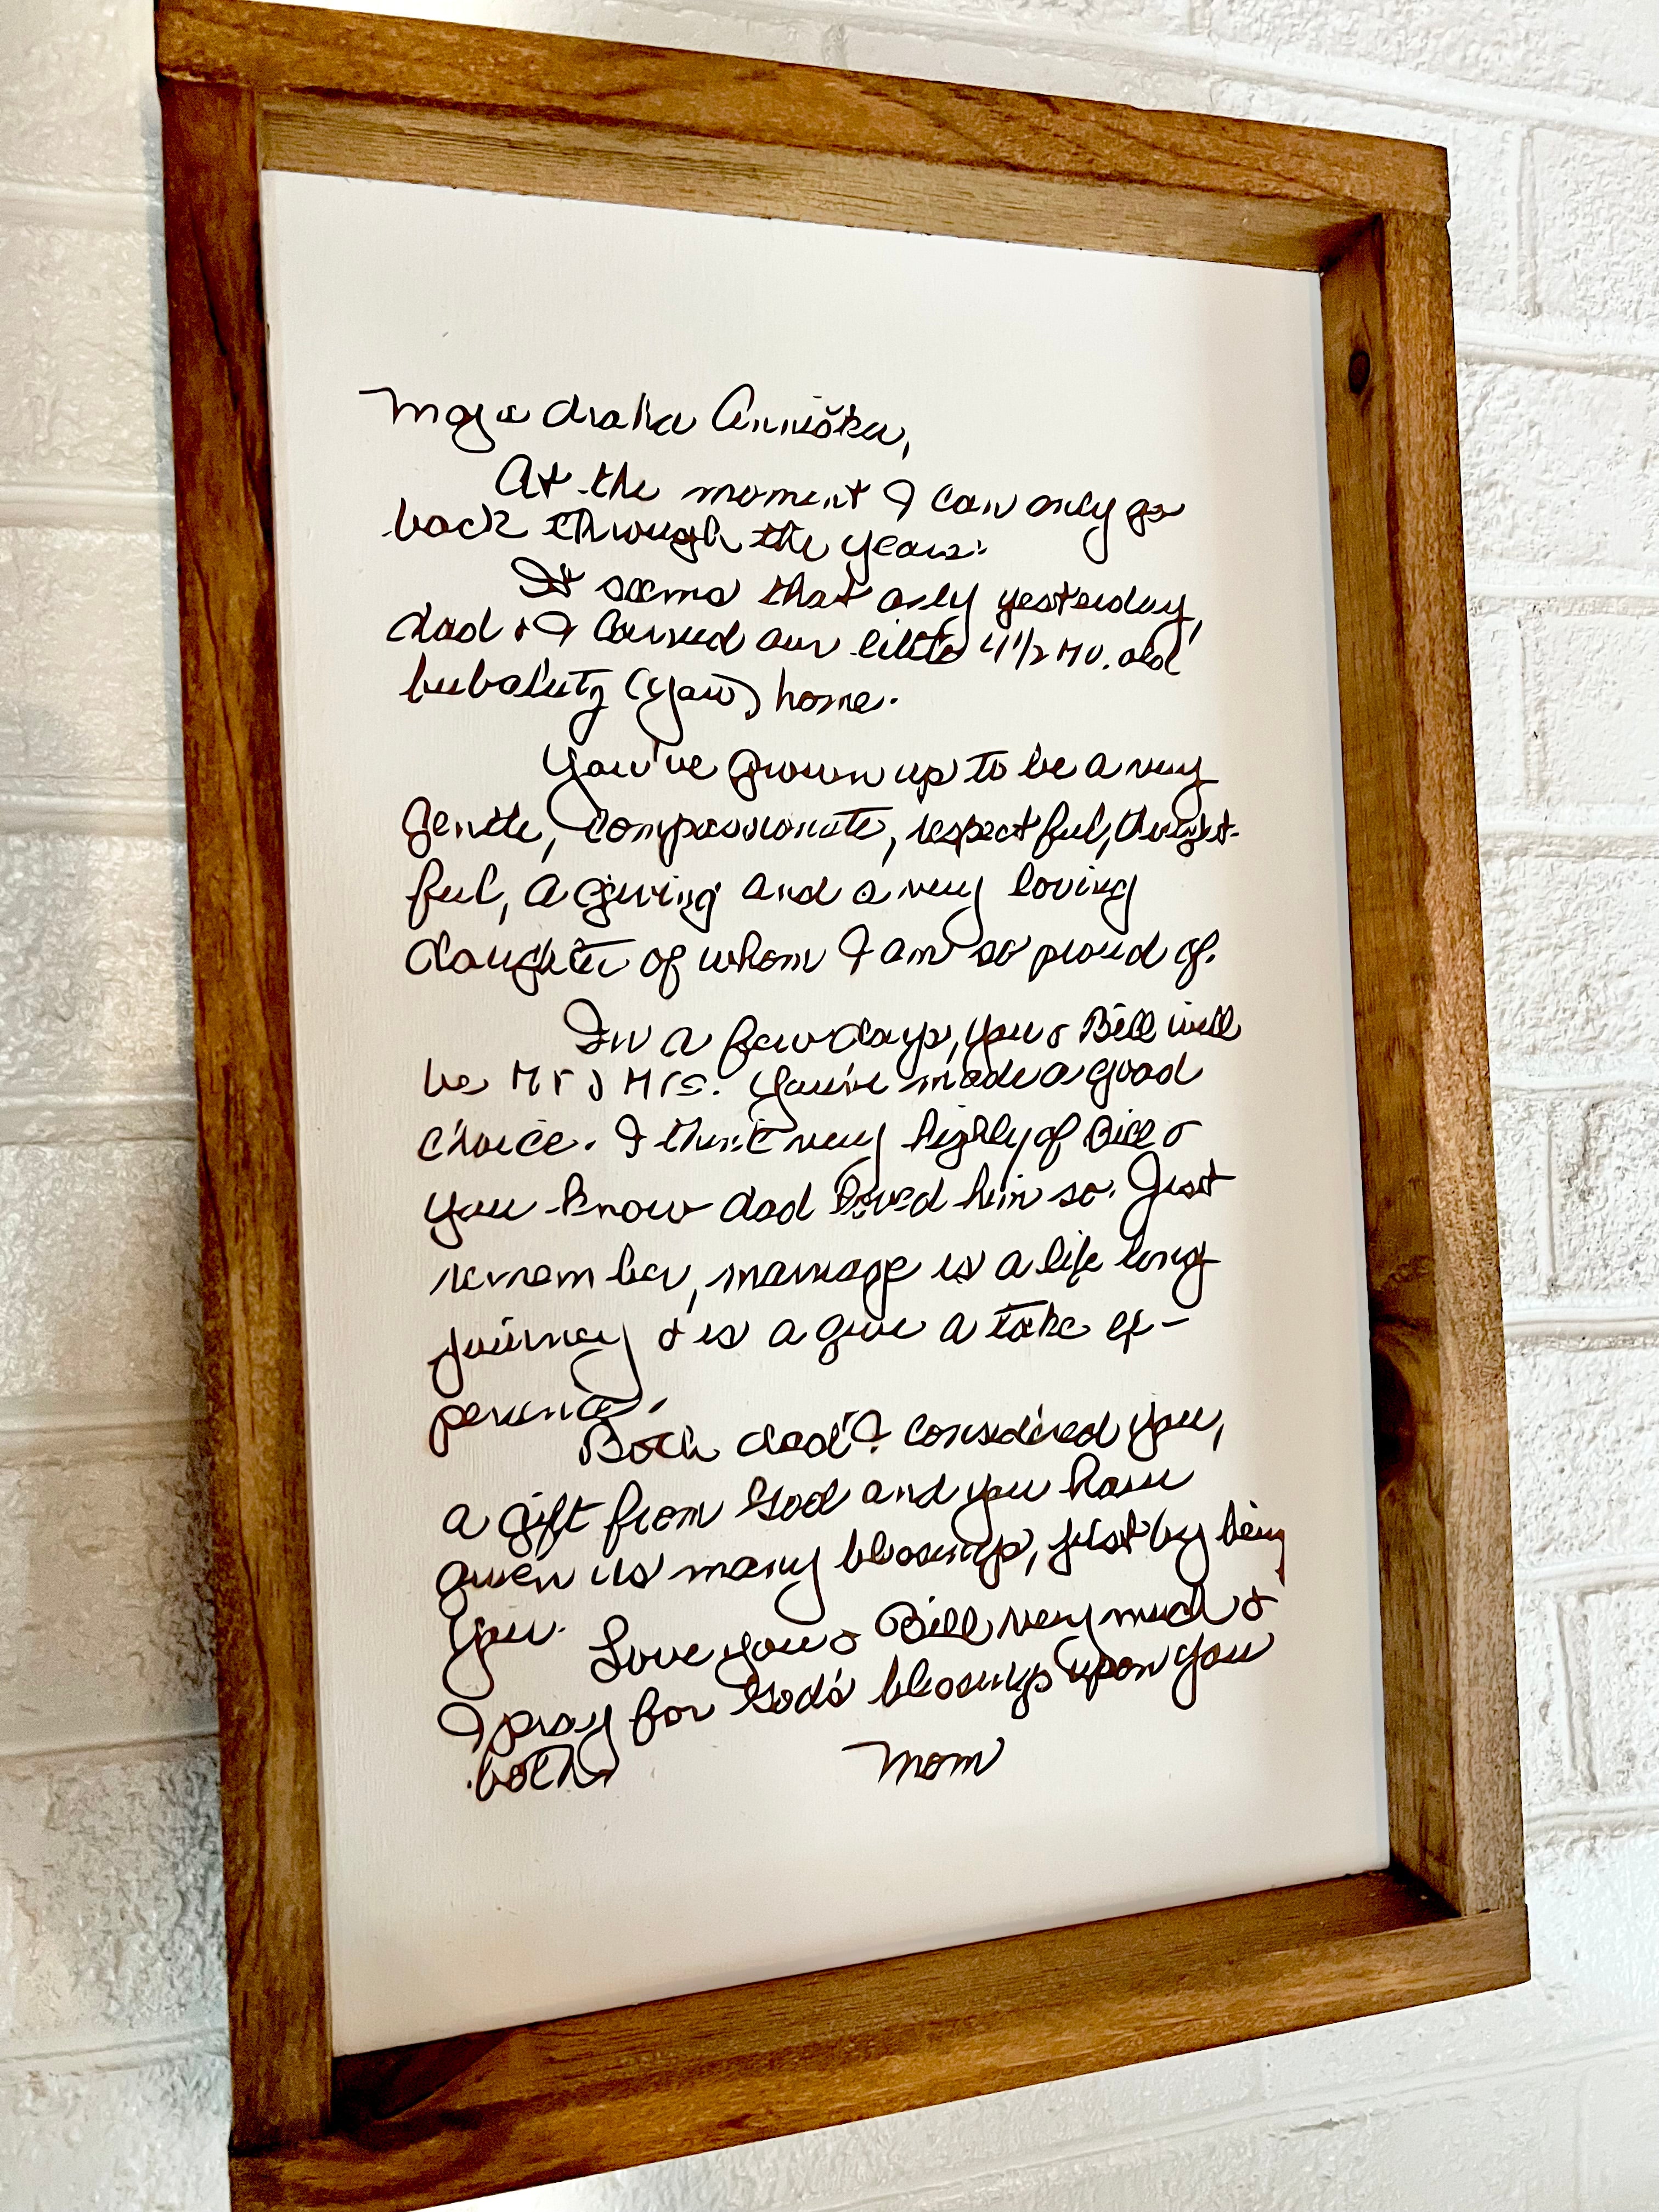 Moja draha Anniška,
At the moment I can only go
back through the years.
It seems that only yesterday,
dad & I carried our little 4 1/2 mo. old
(you) home.
You've grown up to be a very
gentle, compassionate, respectful, thought-
ful, a giving and a very loving
daughter of whom I am so proud of.
In a few days, you & Bill will
be Mr & Mrs. You've made a good
choice. I think very highly of Bill &
you know dad loved him so. Just
remember, marriage is a life long
journey & is a give & take ex-
perience.
Both dad & I considered you,
a gift from God and you have
given us many blessings, just by being
you. Love you & Bill very much &
I pray for God's blessings upon you
both.
Mom